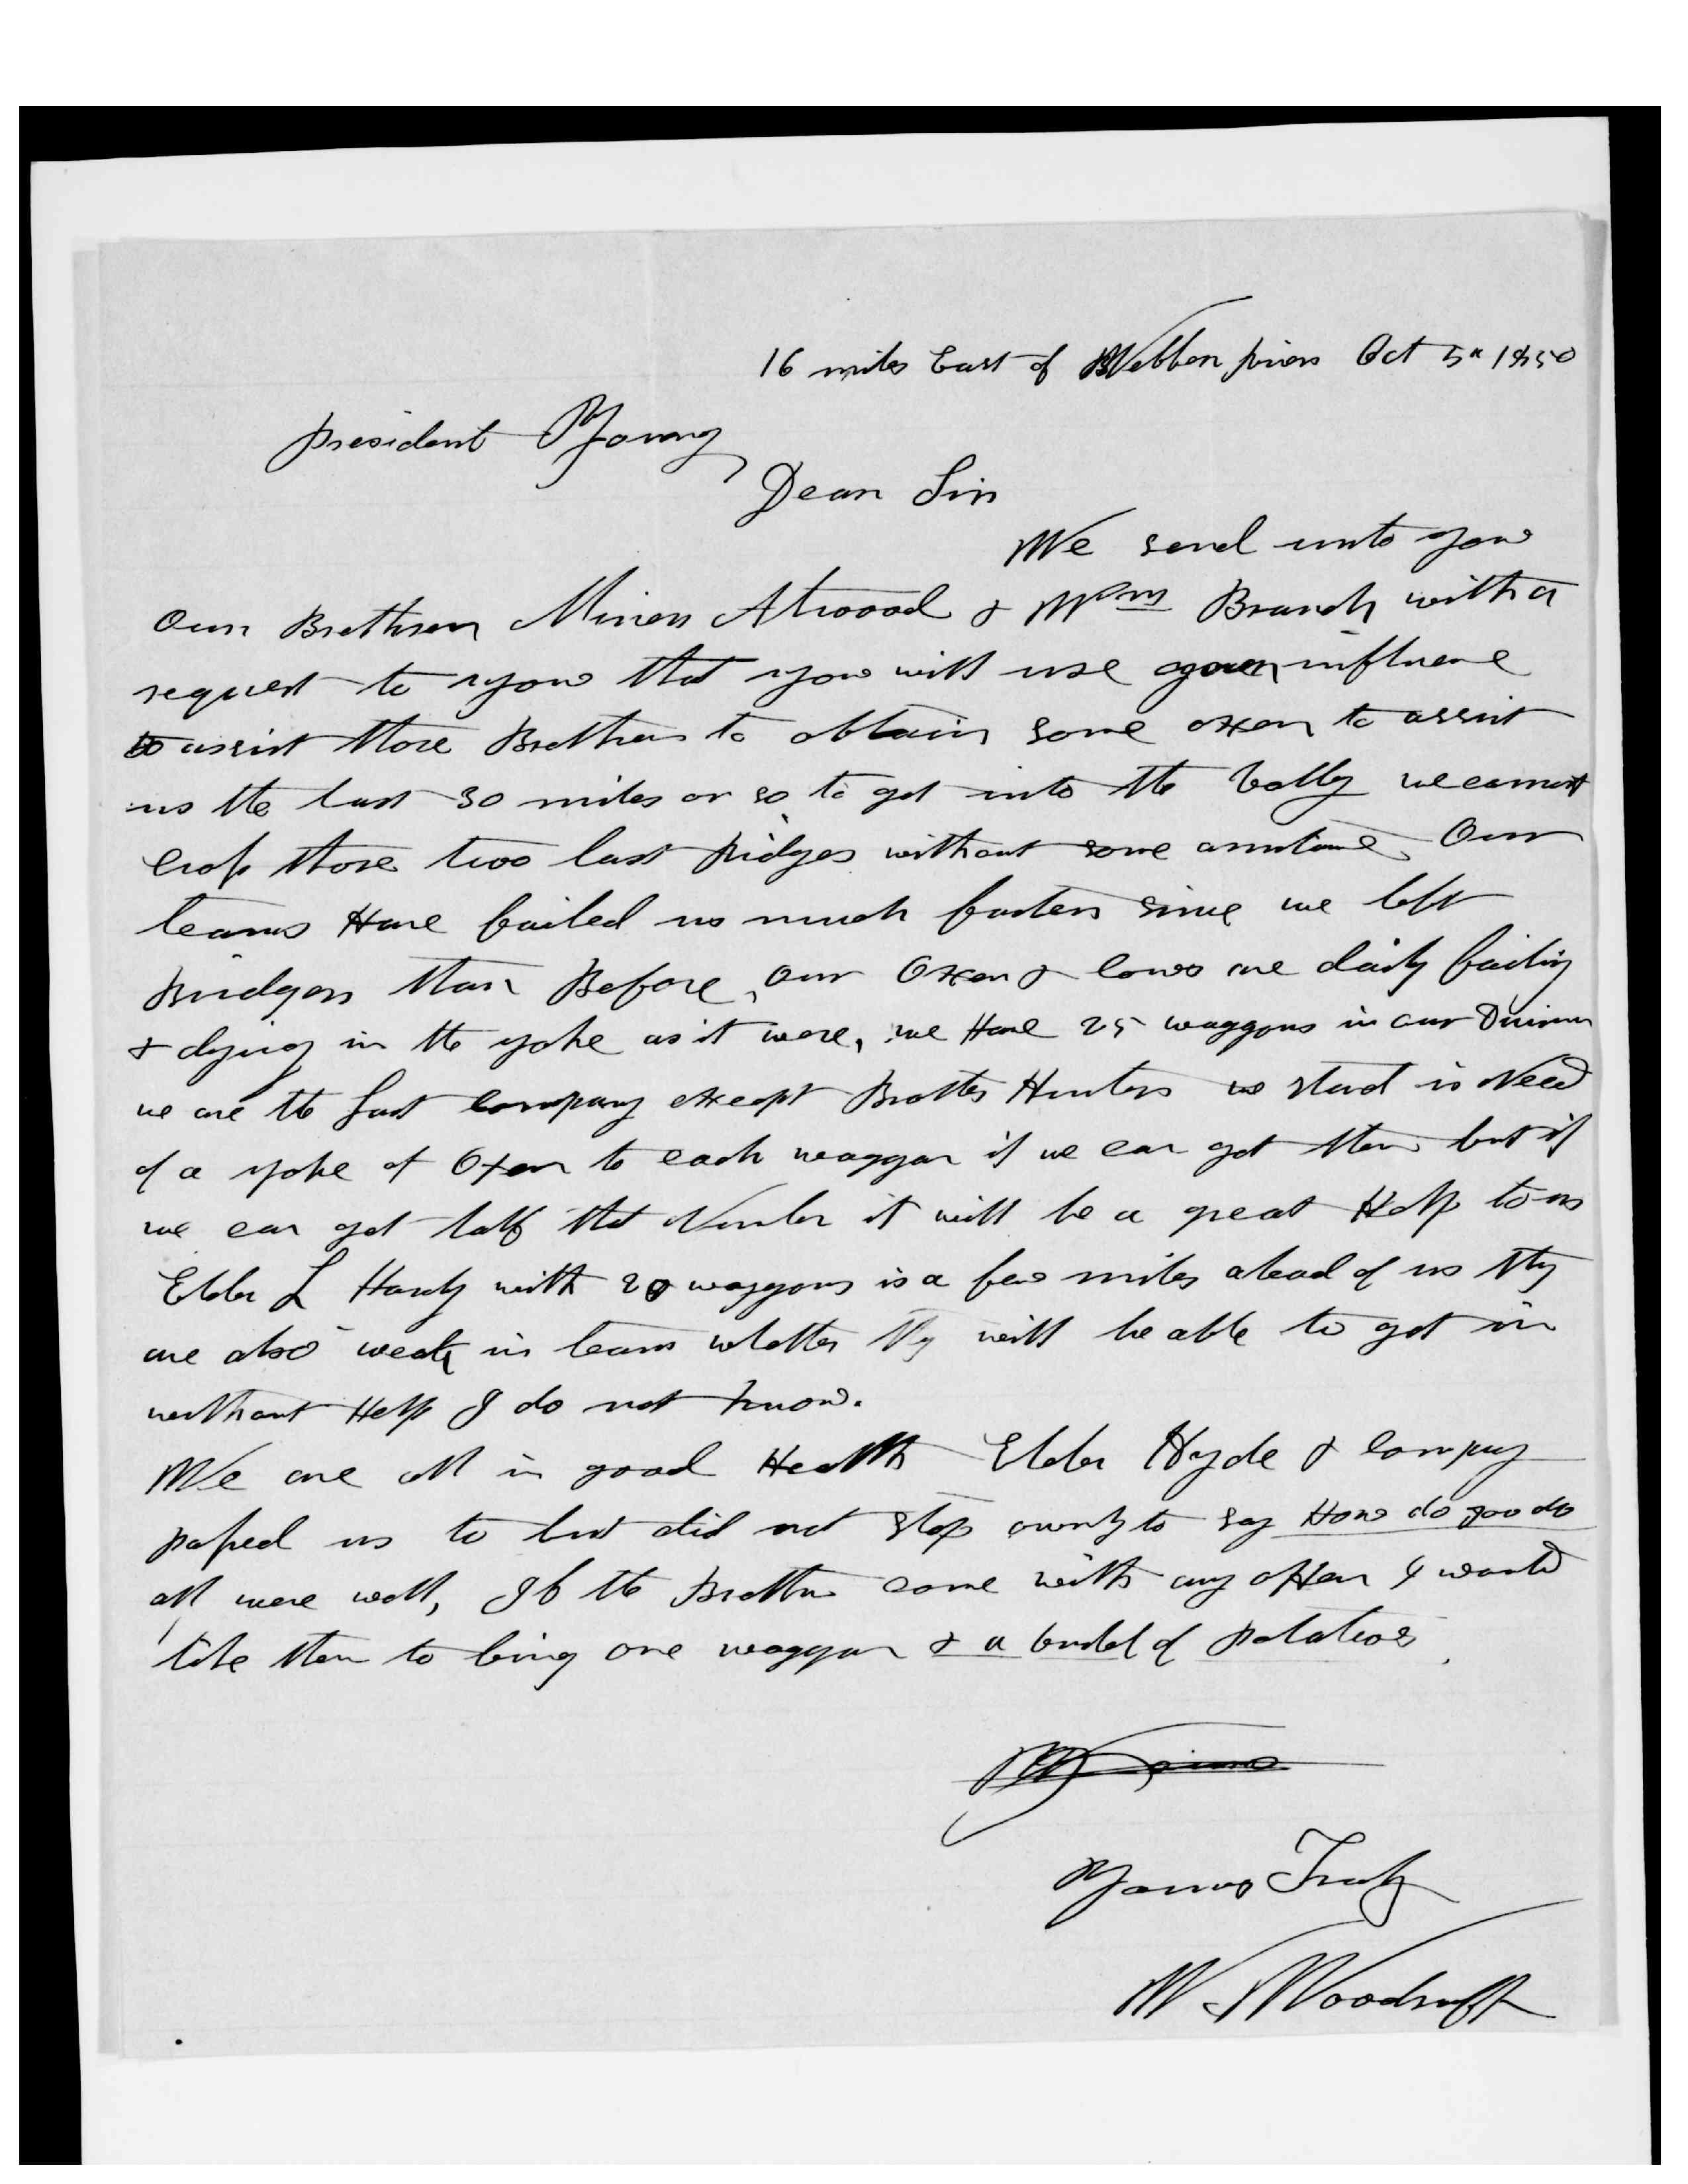 16 miles East of Webber river Oct 5th 1850
President Young
Dear Sir
We send unto you
Our Brethren Minor Atwood & Wm Branch with a
request to you that you will use your influence
to assist those Brethren to obtain some oxen to assist
us the last 30 miles or so to get into the vally we cannot
cross those two last ridges without some assistance. Our
teams Have failed us much faster since we left
Bridgers than Before, our Oxen & cows are daily failing
& dying in the yoke as it were, we Have 25 waggons in our Division
we are the last company except Brother Hunters we stand in Need
of a yoke of Oxen to each waggon if we can get them but if
we can get half that Number it will be a great Help to us
Elder L Hardy with 20 waggons is a few miles ahead of us they
are also weak in team whether they will be able to get in
without Help I do not know.
We are all in good Health Elder Hyde & company
passed us to but did not stop ownly to say How do you do
all were well, If the Brethren come with any oxen I would
like them to bring one waggon & a bushel of potatoes.
Yours Truly
W. Woodruff